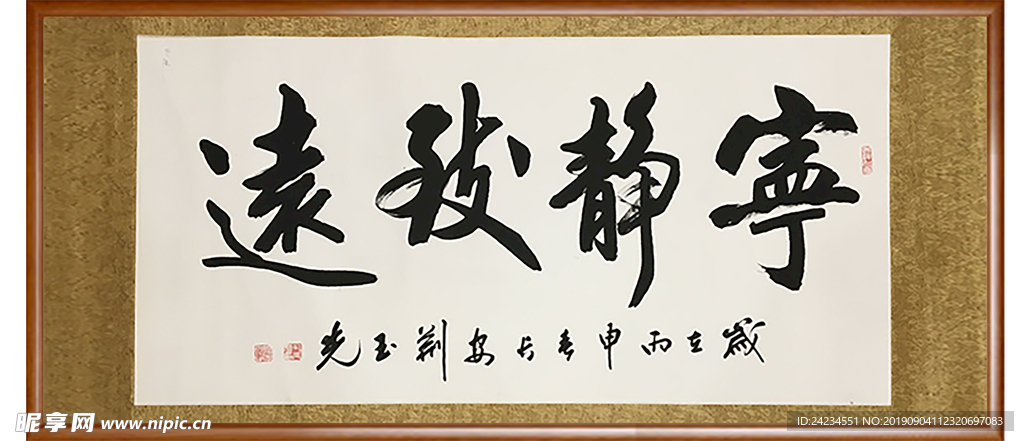 寧靜致遠
歲在丙申春長安荊玉光
昵享网 www.nipic.cn
ID:24234551 NO:20190904112320697083